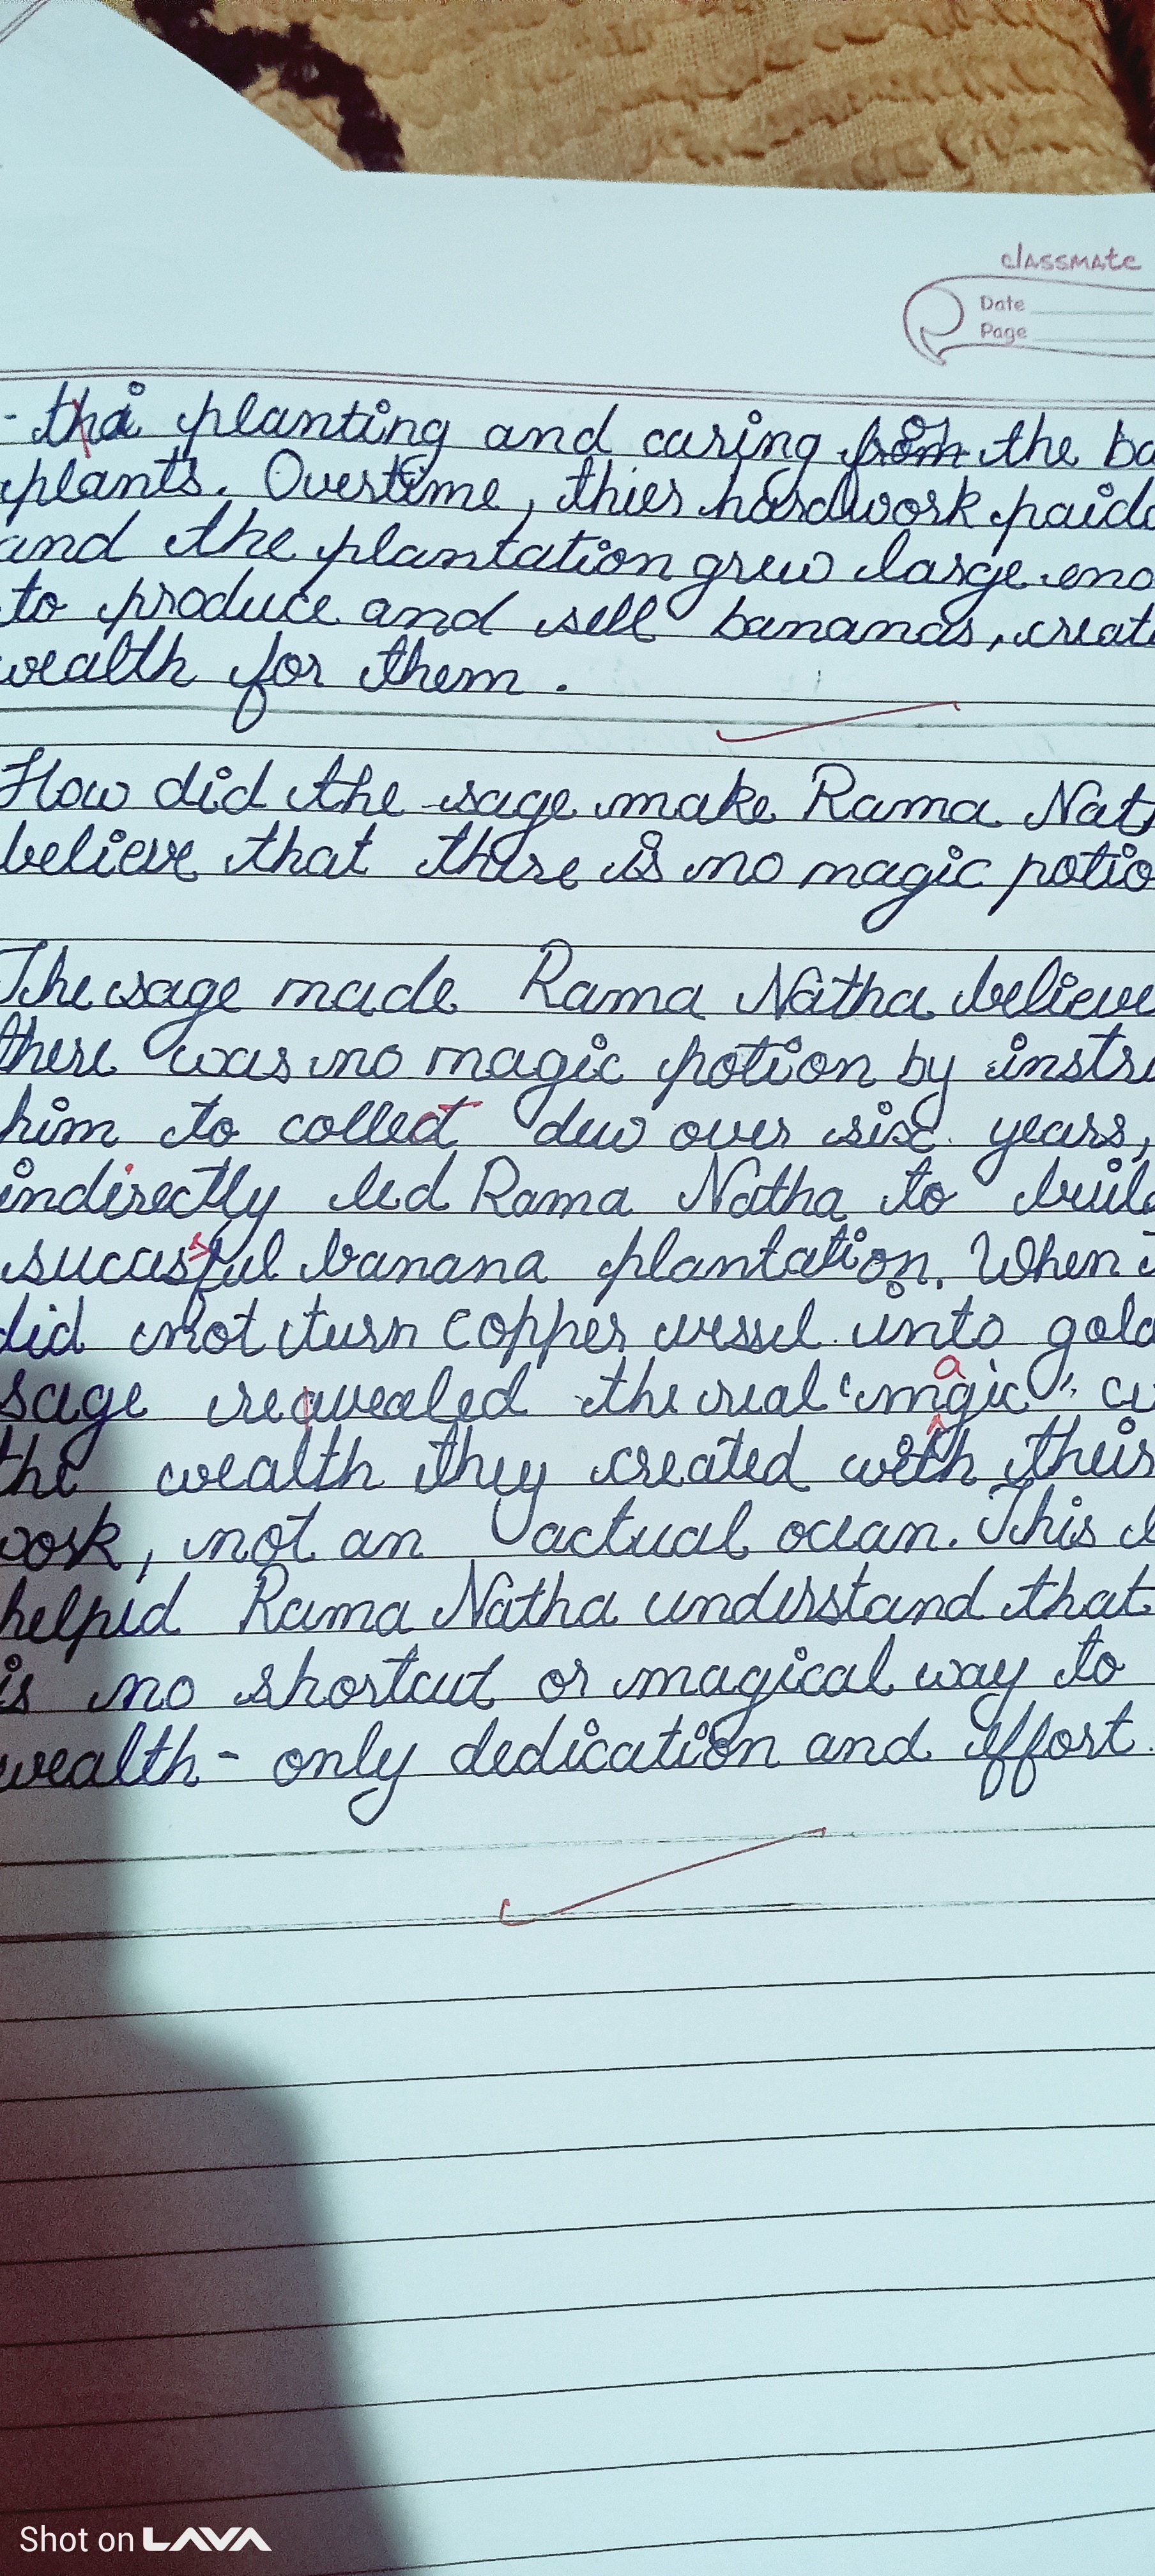 classmate
Date
Page
- tha planting and caring for the ba
plants. Overtime, thier hardwork paid
and the plantation grew large eno
to produce and sell bananas, creat
wealth for them.
How did the sage make Rama Nat
believe that there is no magic potio
The sage made Rama Natha believe
there was no magic potion by instr
him to collect dew over six years,
indirectly led Rama Natha to buil
successful banana plantation. When
did not turn copper vessel into gold
sage reavealed the real "magic"
the wealth they created with their
work, not an actual ocean. This
helped Rama Natha understand that
is no shortcut or magical way to
wealth - only dedication and effort.
Shot on LAVA